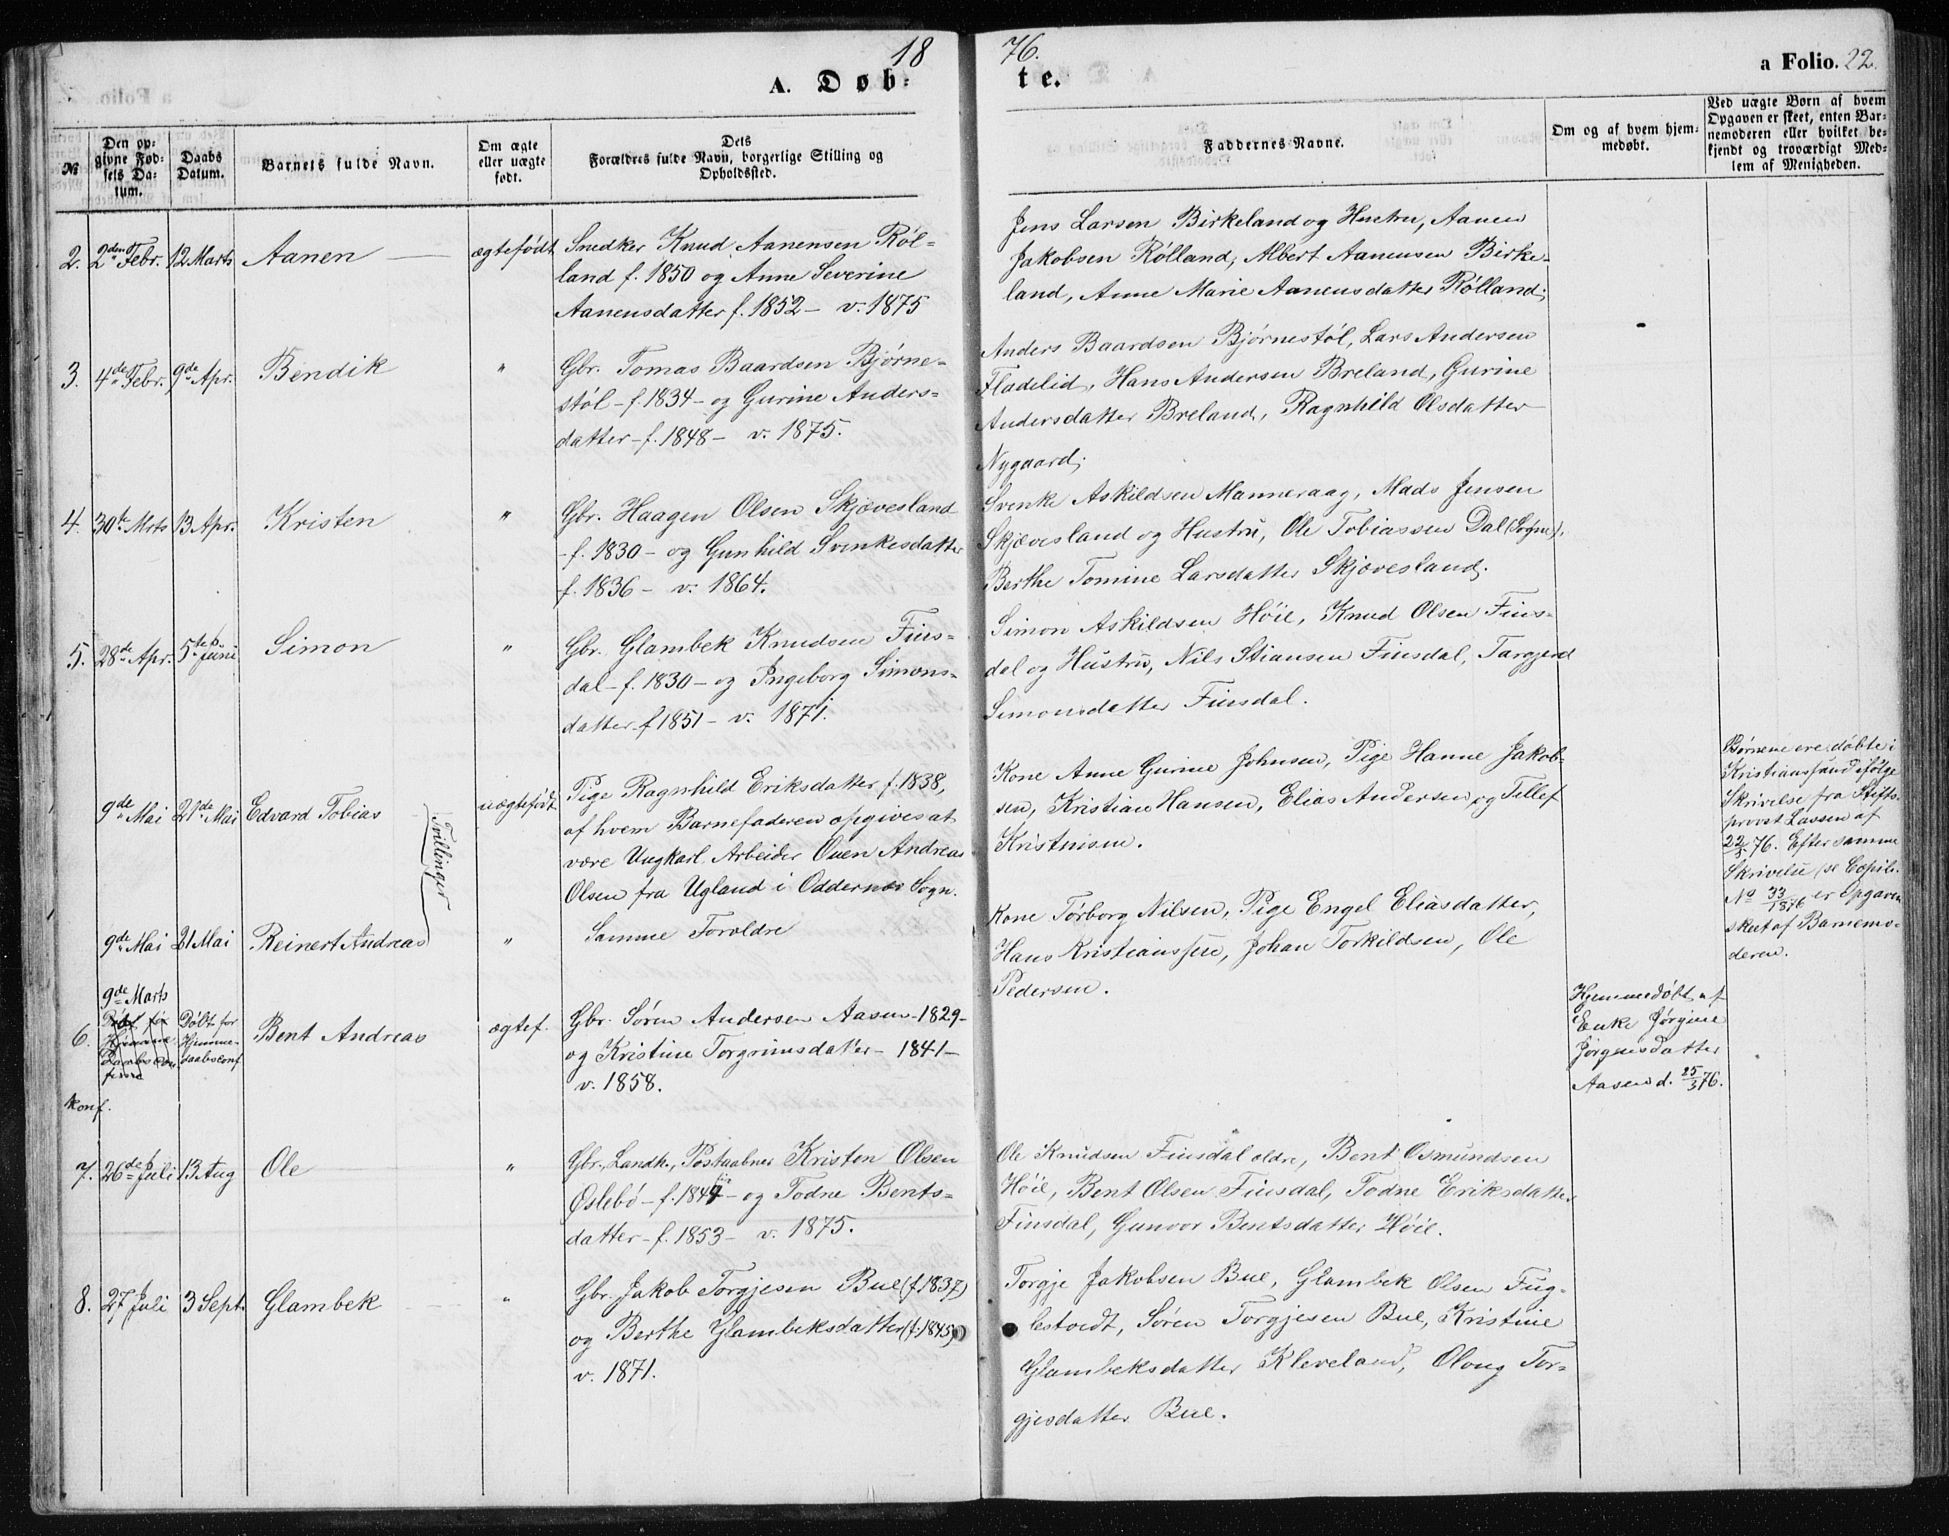 18
76.
A. Døb-
te.
a Folio. 22.
№
Den op-
givne Fød-
sels Da-
tum.
Daabs
Datum.
Barnets fulde Navn.
Om ægte
eller uægte
født.
Dets
Forældres fulde Navn, borgerlige Stilling og
Opholdssted.
Faddernes Navne.
Om og af hvem hjem-
medøbt.
Ved uægte Børn af hvem
Opgaven er skeet, enten Bar-
nemoderen eller hvilket be-
kjendt og troværdigt Med-
lem af Menigheden.
2. 2den Febr. 12 Marts Aanen ægtefødt
Snedker Knud Aanensen Røl-
land f. 1850 og Anne Severine
Aanensdatter f. 1852 – v. 1875
Jens Larsen Birkeland og Hustru, Aanen
Jakobsen Rölland, Albert Aanensen Birke-
land, Anne Marie Aanensdatter Rölland;
3. 4de Febr. 9de Apr. Bendik "
Gbr. Tomas Baardsen Bjørne-
støl – f. 1834 – og Gurine Anders-
datter – f. 1848 – v. 1875.
Anders Baardsen Bjørnestøl, Lars Andersen
Fladelid, Hans Andersen Breland, Gurine
Andersdatter Breland, Ragnhild Olsdatter
Nygaard;
4. 30te Mrts 13 Apr. Kristen "
Gbr. Haagen Olsen Skjævesland
– f. 1830 – og Gunhild Svenkesdatter
f. 1836 – v. 1864.
Svenke Askildsen Manneraag, Mads Jensen
Skjævesland og Hustru, Ole Tobiassen Dal (Sogne),
Berthe Tomine Larsdatter Skjævesland;
5. 28de Apr. 5te Juni Simon "
Gbr. Glambek Knudsen Fins-
dal – f. 1830 – og Ingeborg Simons-
datter f 1851 – v. 1871.
Simon Askildsen Høie, Knud Olsen Fins-
dal og Hustru, Nils Stiansen Finsdal, Targjerd
Simonsdatter Finsdal.
9de Mai 21de Mai Edvard Tobias uægtefødt
Tvillinger
Pige Ragnhild Eriksdatter f. 1838,
af hvem Barnefaderen opgives at
være Ungkarl Arbeider Ouen Andreas
Olsen fra Ugland i Oddernæs Sogn.
Kone Anne Gurine Johnsen, Pige Hanne Jakob-
sen, Kristian Hansen, Elias Andersen og Tellef
Kristensen.
Børnene ere døbte i
Kristianssand ifølge
Skrivelse fra Stifts-
provst Lassen af
22/5 76. Efter samme
Skrivelse (se Copib.
No 33/1876 er Opgaven
skeet af Barnemo-
deren.
9de Mai 21 Mai Reinert Andreas "
Samme Forældre
Kone Tørborg Nilsen, Pige Engel Eliasdatter,
Hans Kristianssen, Johan Torkildsen, Ole
Pedersen.
6.
konf.
9de Marts
Døbt for
Hjemme-
daabsconf
Bent Andreas ægtef.
Gbr. Søren Andersen Aasen – 1829 –
og Kristine Torgrimsdatter – 1841 –
v. 1858.
Hjemmedøbt af
Enke Jørgine
Jørgensdatter
Aasen d. 25/3 76.
7. 26de Juli 13 Aug Ole "
Gbr., Landh., Postaabner Kristen Olsen
Øslebø – f. 1844 – og Todne Bents-
datter – f. 1853 – v. 1875.
Ole Knudsen Finsdal ældre, Bent Osmundsen
Høie, Bent Olsen Finsdal, Todne Eriksdatter
Finsdal, Gunvor Bentsdatter Høie.
8. 27 Juli 3 Sept. Glambek "
Gbr. Jakob Torgjesen Bue (f. 1837)
og Berthe Glambeksdatter (f. 1845)
v. 1871.
Torgje Jakobsen Bue, Glambek Olsen Fug-
lestvedt, Søren Torgjesen Bue, Kristine
Glambeksdatter Kleveland, Oloug Tor-
gjesdatter Bue.